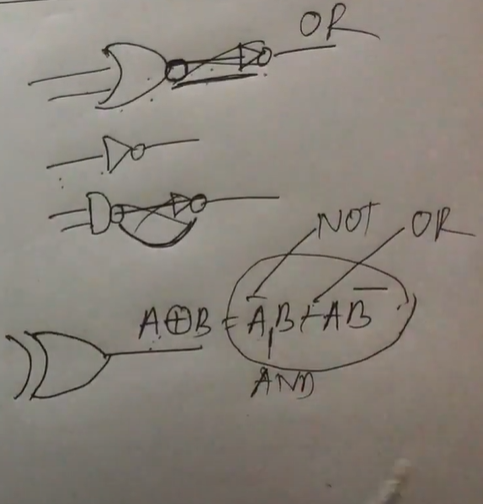 OR
NOT OR
A⊕B = A̅.B + AB̅
AND